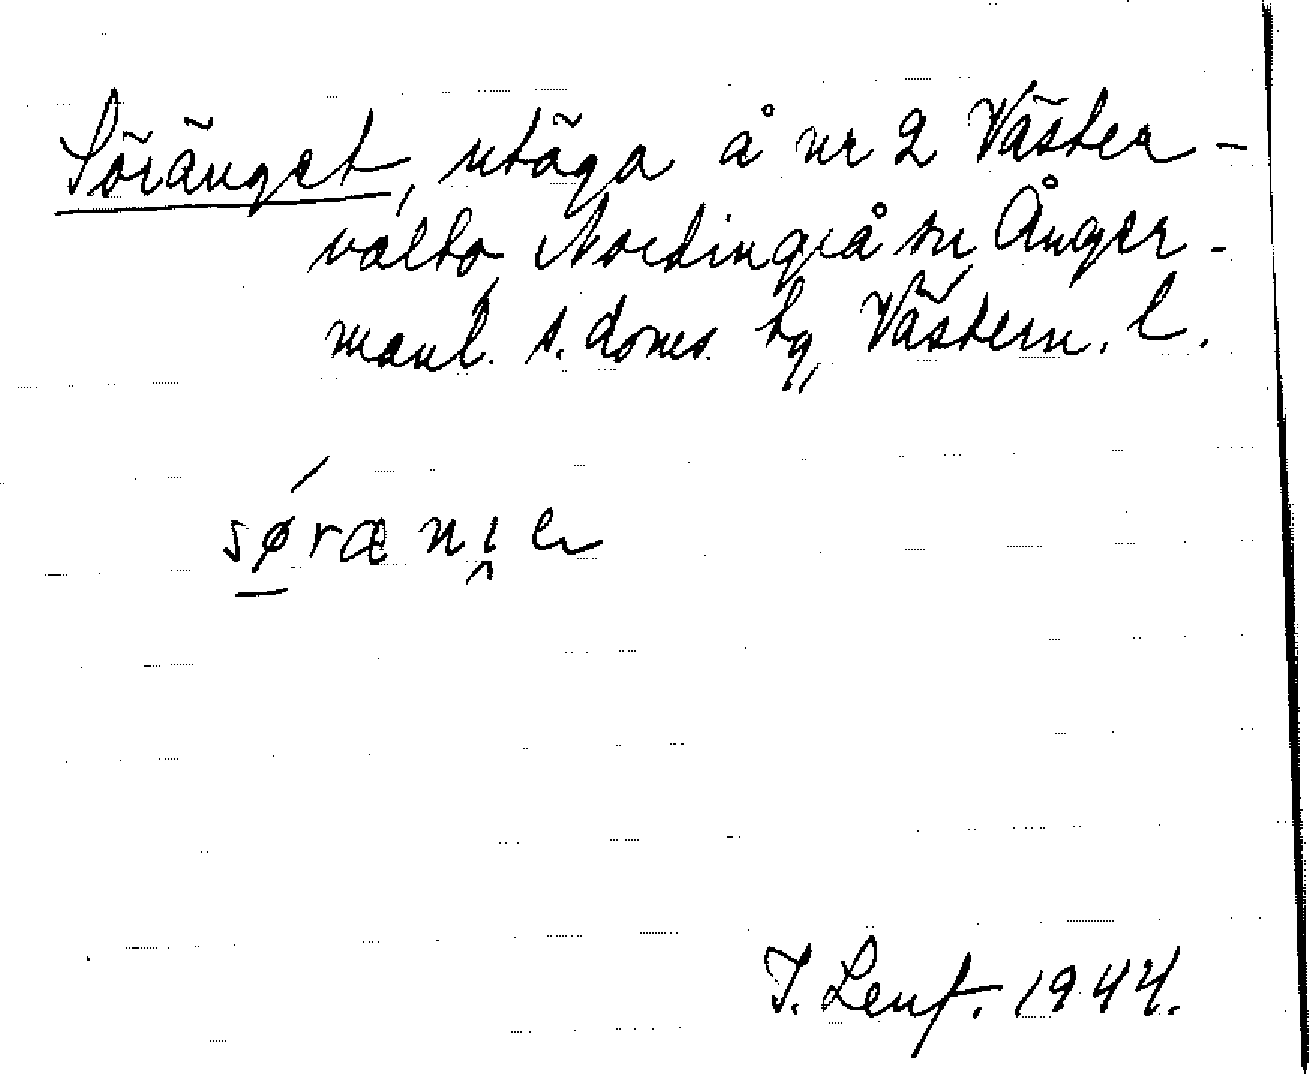 Söränget, utäga å nr 2 Väster-
valto, Nordingrå sn Ånger-
manl. s. doms. hg, Västern. l.
søræni̭e
J. Lenf. 1944.